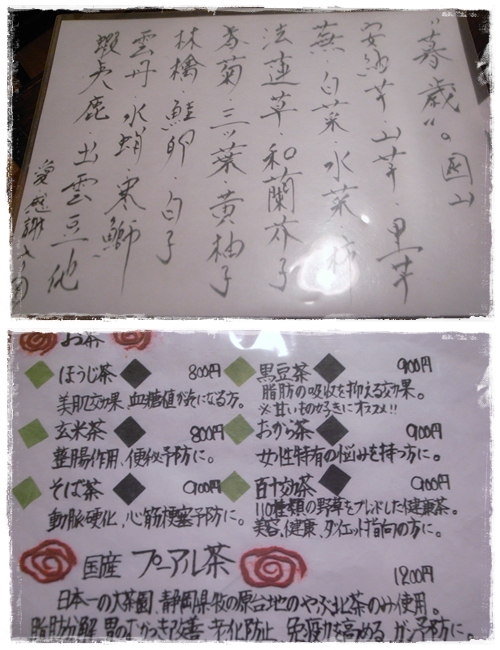 "暮歳"。園山
安納芋・山芋・里芋
蕪・白菜・水菜・柿
法蓮草・和蘭芥子
春菊・三ッ葉・黄柚子
林檎・鮭卵・白子
雲丹・水蛸・寒鰤
蝦夷鹿・出雲豆他
愛感謝
お茶
ほうじ茶 800円
美肌効果、血糖値が気になる方。
玄米茶 800円
整腸作用、便秘予防に。
そば茶 900円
動脈硬化、心筋梗塞予防に。
黒豆茶 900円
脂肪の吸収を抑える効果。
※甘いもの好きにオススメ!!
おから茶 900円
女性特有の悩みを持つ方に。
百十効茶 900円
110種類の野草をブレンドした健康茶。
美容、健康、ダイエット指向の方に。
国産 プーアル茶
1200円
日本一の大茶園、静岡県牧の原台地のやぶ北茶のみ使用。
脂肪分解 胃のむかつき改善 老化防止、免疫力を高める ガン予防に。